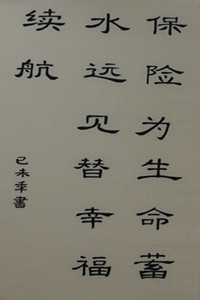 保险为生命蓄
水远见替幸福
续航
己未年書